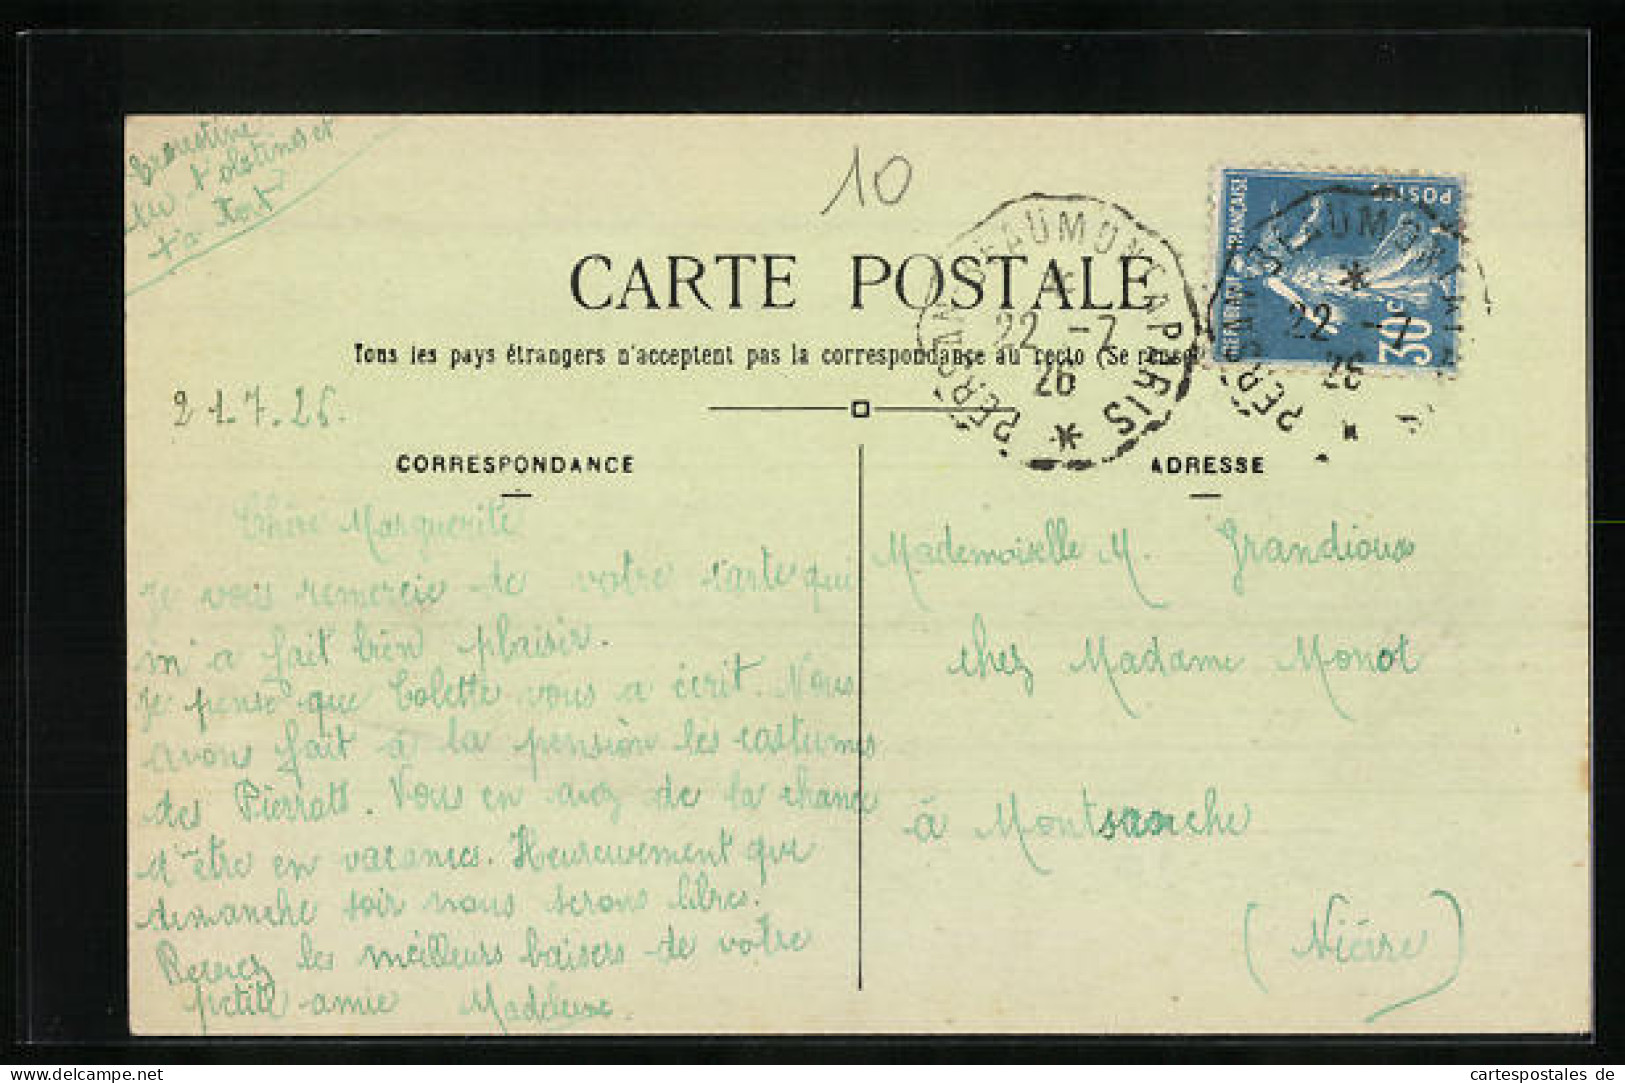 t'obstines et
tu
t'a tort
10
CARTE POSTALE
Tous les pays étrangers n'acceptent pas la correspondance au recto (Se rense
21.7.26.
CORRESPONDANCE
Chère Marguerite
Je vous remercie de votre carte qui
m'a fait bien plaisir.
Je pense que Colette vous a écrit. Nous
avons fait à la pension les costumes
des Pierrots. Vous en avez de la chance
d'être en vacances. Heureusement que
dimanche soir nous serons libres.
Recevez les meilleurs baisers de votre
petite amie Madeleine.
ADRESSE
Mademoiselle M. Grandioux
chez Madame Monot
à Montsauche
(Nièvre)
BEAUMONT A PARIS
22 -7
26
POSTES
FRANÇAISE
30c
22 -7
26
cartespostales de
www.delcampe.net